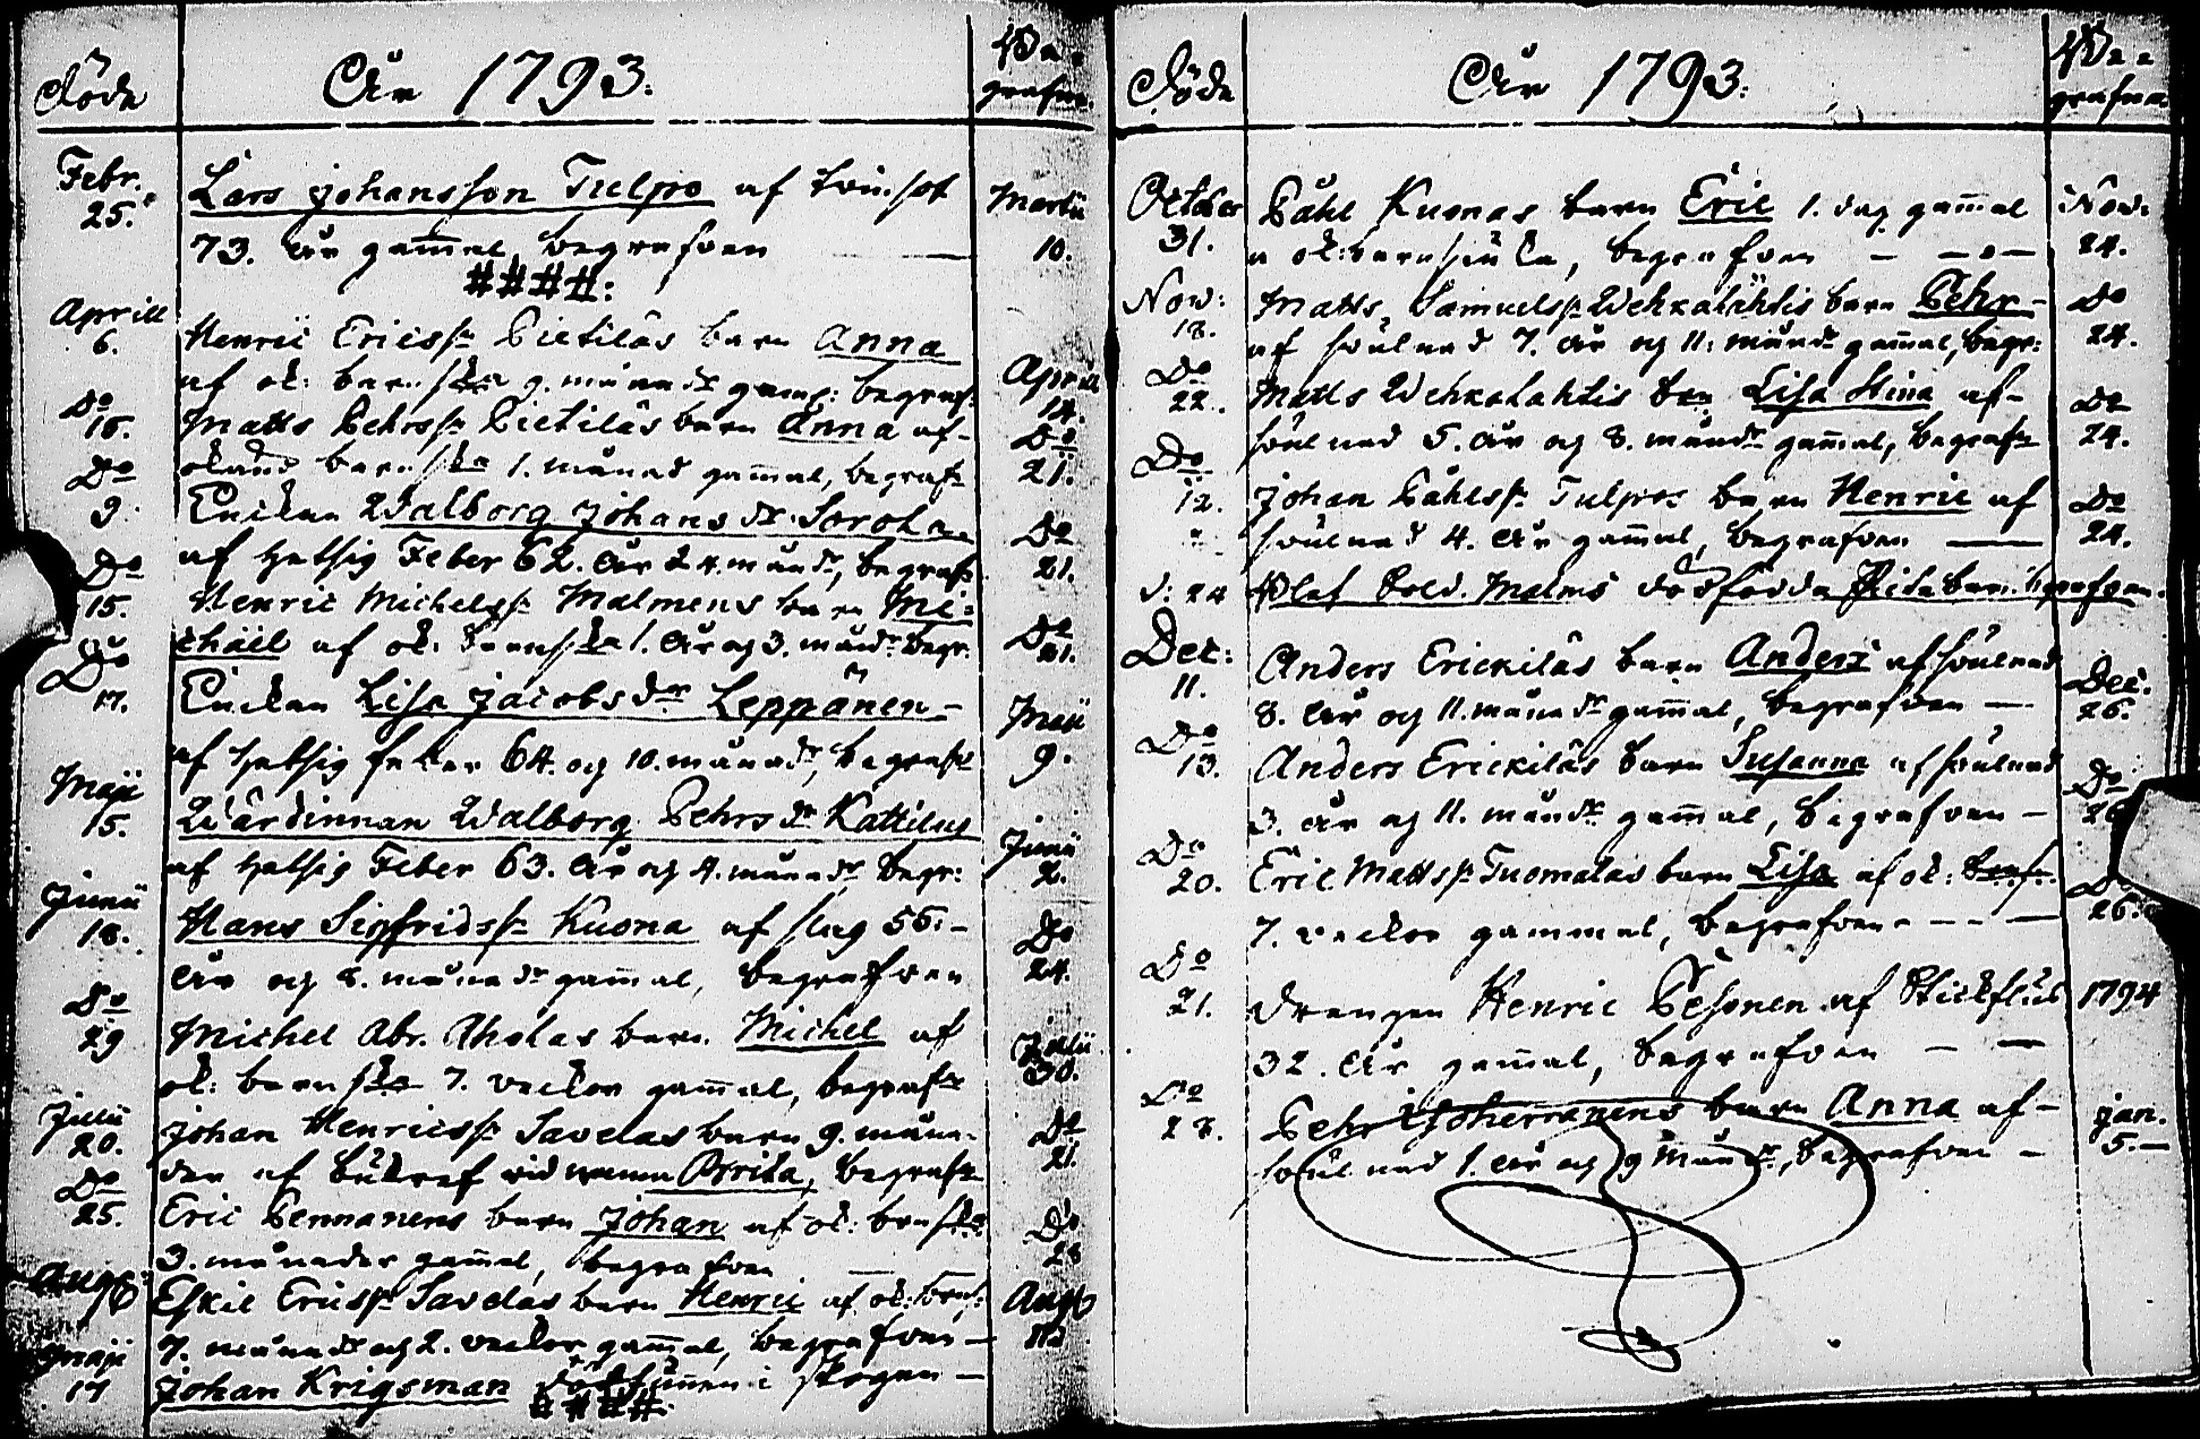 Döde
År 1793.
Be-
grafne.
Febr. 25. Lars Johansson Tulpo af tvinsot Martii
73. år gam̄al, begrafven 10.
####:
Aprill 6. Henric Ericss: Pietiläs barn Anna
af ok: barns:ka 9. månadr gam̄l: begraf: Aprill 14.
Do 10. Matts Pehrss: Pietiläs barn Anna af
okänd barns:ka 1. månad gam̄al, begrafn Do 21.
Do 9. Enckan Walborg Johansdr. Sorola
af hetsig Feber 62. år 4. månadr, begrafn Do 21.
Do 15. Henric Michelss: Malmens barn Mi=
chaël af ok: barns:ka 1. år og 3. månadr begr. Do 21.
Do 17. Enckan Lisa Jacobsdr Leppänen
af hetsig feber 64. og 10. månadr, begrafn Maji 9.
Maji 15. Wärdinnan Walborg Pehrsdr Kattilus
af hetsig Feber 63. år og 4. månadr begr: Junii 2.
Junii 18. Hans Sigfridss: Kuona af slag 56.
år og 8. månadr gam̄al, begrafven Do 24.
Do 29 Michel Abr. Aholas barn Michel af
ok: barns:ka 7. veckor gam̄al, begrafn Junii 30.
Julii 20. Johan Henricss: Savelas barn 9. måna-
der af vid namn Brita, begrafn Do 21.
Do 25. Eric Pennanens barn Johan af ok: barns:ka
3. månader gam̄al, begrafven Do 28
Aug: Eskil Ericss: Savelas barn Henric af ok: barns:
7. månadr og 2. veckor gam̄al, begrafven Aug:
Maji 17 Johan Krigsman död funnen i skogen
####.
Döde
År 1793.
Be-
grafna
October 31. Påhl Kuonas barn Eric 1. dag gam̄al Nov:
a ok: barnsjuka, begrafven 24.
Nov: 18. Matts Samuelss: Wehkalahtis barn Pehr Do
af svulnad 7. år og 11. månadr gam̄al, begr: 24.
Do 22. Matts Wehkalahtis barn Lisa Stina af Do
svulnad 5. år og 8. månadr gam̄al, begrafn 24.
Do 12. Johan Påhlss: Tulpos barn Henric af Do
svulnad 4. år gam̄al, begrafven 24.
d: 24 Sold. Malms dödfödda barn begrafven.
Dec: 11. Anders Erickiläs barn Anders af svulnad Dec.
8. år og 11. månadr gam̄al, begrafven 26.
Do 13. Anders Erickiläs barn Susanna af svulnad Do
3. år og 11. månadr gam̄al, begrafven 26
Do 20. Eric Mattss: Tuomalas barn Lisa af ok: barns: Do
7. veckor gammal, begrafven 26.
Do 21. Drengen Henric Pesonen af Stickfluss 1794
32. år gam̄al, begrafven
Do 28. Pehr Ihoherranens barn Anna af Jan.
svulnad 1. år og 9 månadr, begrafven 5.